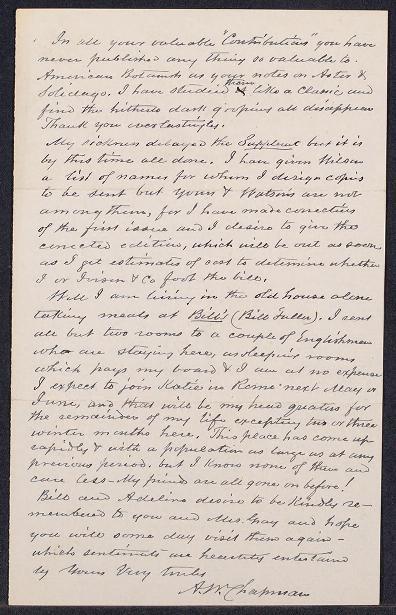 In all your valuable "Contributions" you have
never published any thing so valuable to
American Botanists as your notes on Aster &
Solidago. I have studied them like a classic and
find the hitherto dark groupings all disappear
Thank you everlastingly.
My sickness delayed the Supplement but it is
by this time all done. I have given Wilson
a list of names for whom I design copies
to be sent but yours & Watson's are not
among them, for I have made corrections
of the first issue and I desire to give the
corrected edition, which will be out as soon
as I get estimates of cost to determine whether
I or Ivison & Co foot the bill.
Well I am living in the old house alone
taking meals at Bill's (Bill Fuller). I rent
all but two rooms to a couple of Englishmen
who are staying here, as sleeping rooms
which pays my board & I am at no expense
I expect to join Katie in Rome next May or
June, and that will be my head quarters for
the remainder of my life excepting two or three
winter months here. This place has come up
rapidly & with a population as large as at any
previous period. but I know none of them and
care less - My friends are all gone on before!
Bill and Adeline desire to be kindly re-
membered to you and Mrs. Gray and hope
you will some day visit them again -
which sentiments are heartily entertained
by Yours Very truly
A. W. Chapman